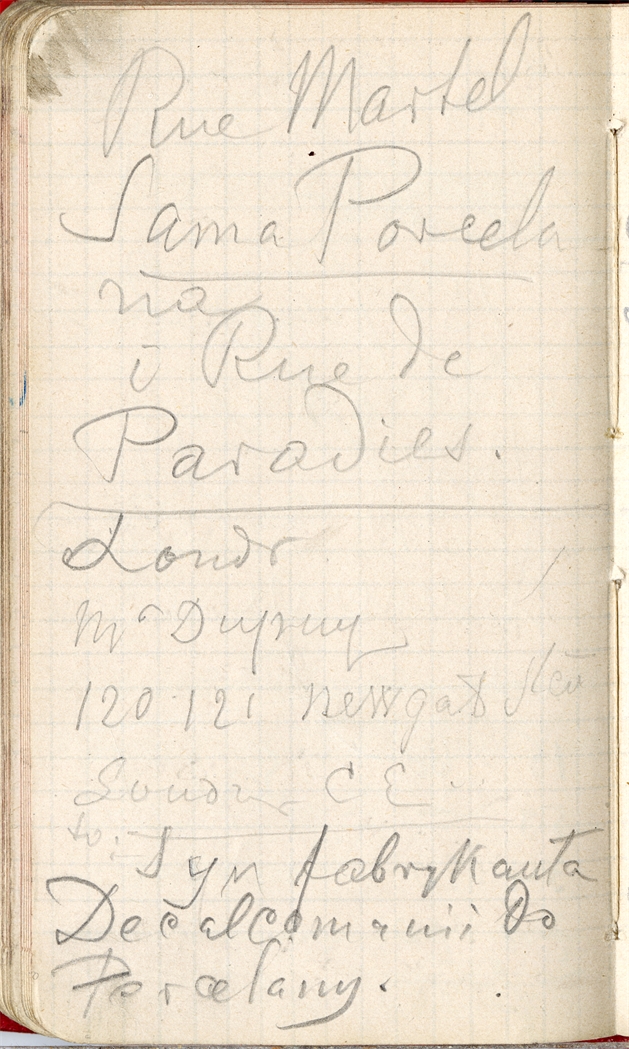 Rue Martel
Sama Porcela
na
i Rue de
Paradies.
Londr
Mr Dupuy
120 121 Newgat
London CE
to:
Syn fabrykanta
Decalcomanii do
Porcelany.